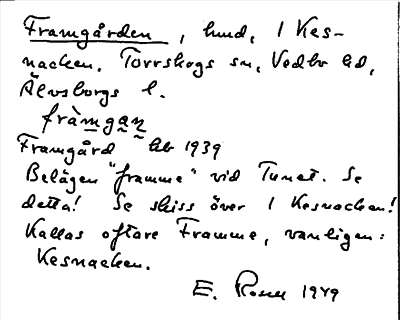 Framgården, hmd, 1 Kes-
nacken. Torrskogs sn, Vedbo hd,
Älvsborgs l.
fràmgan
Framgård hb 1939
Belägen "framme" vid Tunet. Se
detta! Se skiss över 1 Kesnacken!
Kallas oftare Framme, vanligen:
Kesnacken.
E. Rosell 1949